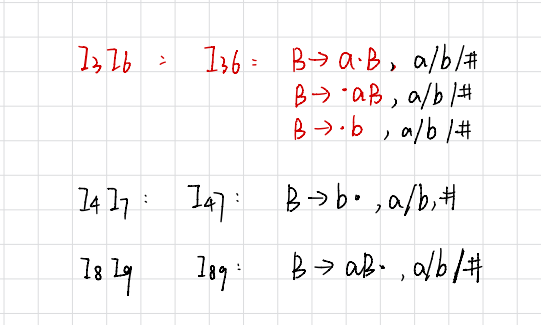 I3I6 : I36: B→a·B, a/b/#
B→·aB, a/b/#
B→·b , a/b/#
I4I7: I47: B→b·, a/b,#
I8I9 I89: B→aB·, a/b/#